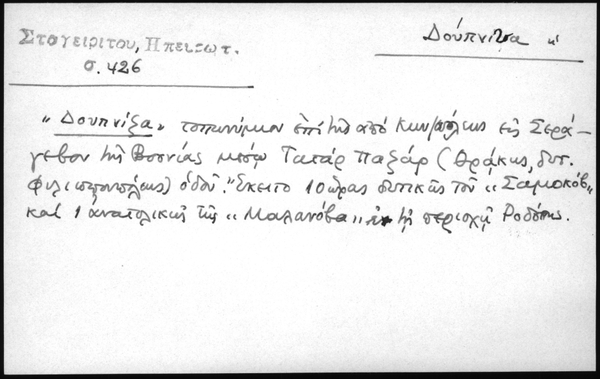 Σταγειρίτου, Ηπειρωτ.
σ. 426
Δούπνιτσα
"Δουπνίξα" τοπωνύμιον ἐπί τῆς ἀπό Κων/πόλεως εἰς Σερά-
γεβον τῆς Βοσνίας μέσῳ Τατάρ Παζάρ (Θράκης, δυτ.
Φιλιππουπόλεως) ὁδοῦ. Ἔκειτο 10 ὥρας δυτικῶς τοῦ "Σαμοκόβ"
καί 1 ἀνατολικῶς τῆς "Μαλανόβα" ἐν τῇ περιοχῇ Ροδόπης.